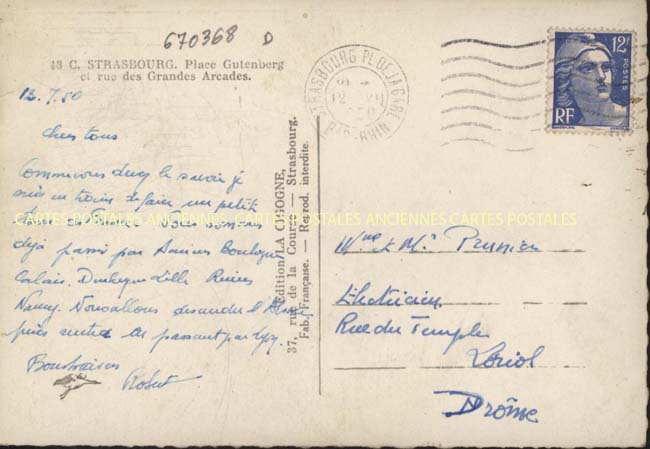 670368 D
48 C. STRASBOURG. Place Gutenberg
et rue des Grandes Arcades.
12.7.50
Chers tous
Comme vous devez le savoir je
suis en train de faire un petit
de France. Nous sommes
déjà passé par Amiens Boulogne
Calais. Dunkerque Lille Reims
Nancy. Nous allons descendre
puis rentrer en passant par Lyon.
Robert
CARTES POSTALES ANCIENNES CARTES POSTALES ANCIENNES CARTES POSTALES
Edition LA CIGOGNE,
37, rue de la Course — Strasbourg.
Fab. Française. — Reprod. interdite.
STRASBOURG PL DE LA GARE
12 - VII
BAS-RHIN
12F
POSTES
RF
Mme et Mr Prunier
Electricien
Rue du Temple
Loriol
Drôme